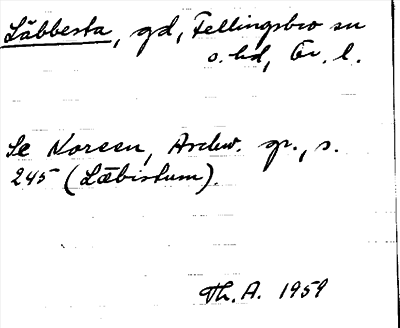 Läbbesta, gd, Fellingsbro sn
o. hd, Ör. l.
Se Noreen, Aschw. gr., s.
245 (Læbistum).
Th. A. 1959